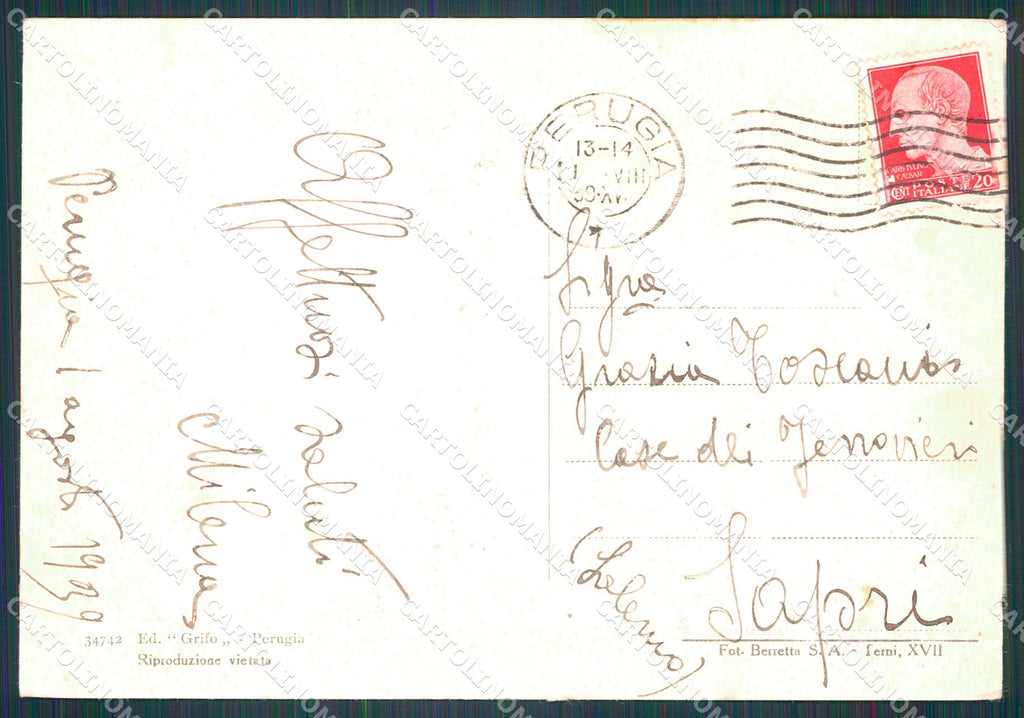 Perugia 1 agosto 1939
Affettuosi saluti
Milena
34742 Ed. "Grifo„ - Perugia
Riproduzione vietata
PERUGIA
13-14
1 VIII
39·XVII
CENT POSTE 20
ITALIANE
CAESAR
Sigra
Grazia Toscano
Case dei Ferrovieri
Sapri
(Salerno)
Fot. Berretta S. A. - Terni, XVII
CARTOLINOMANIA